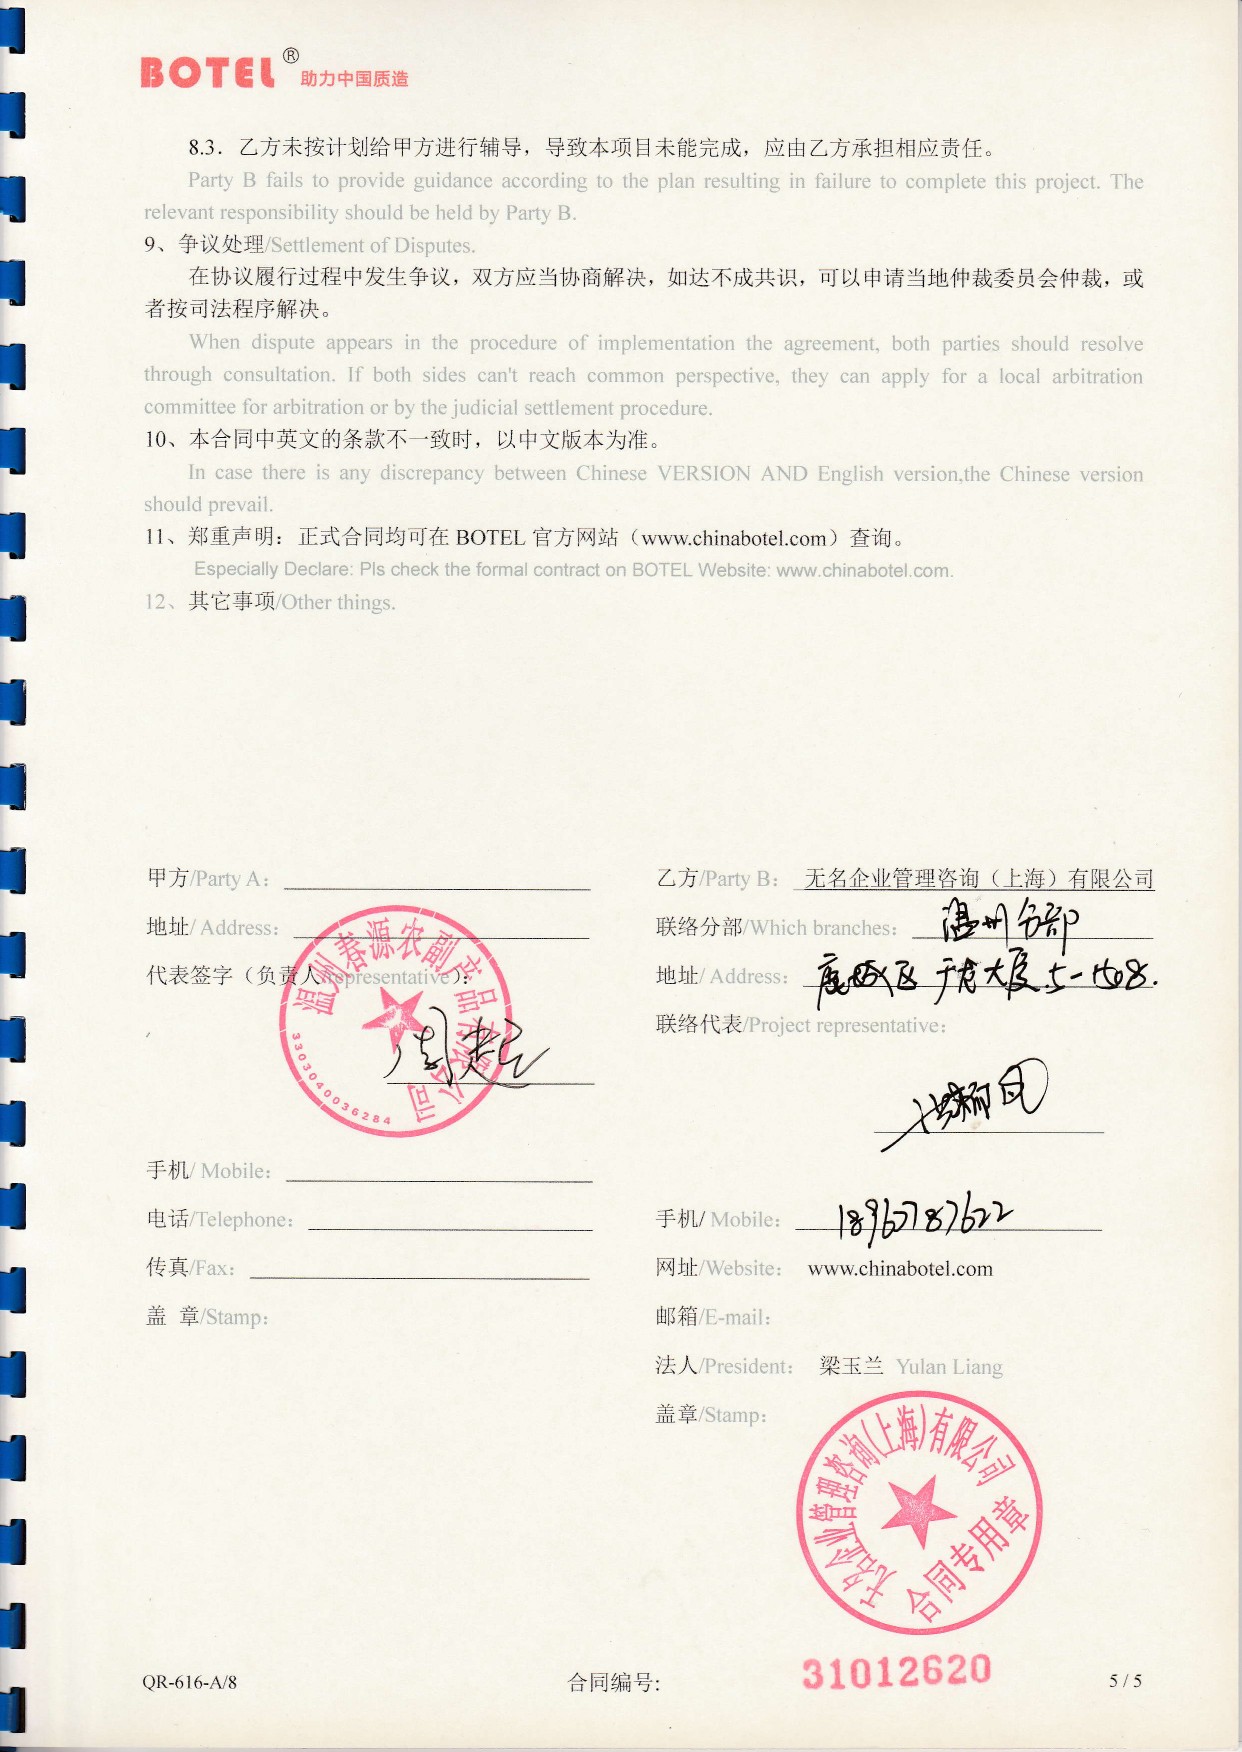 BOTEL® 助力中国质造
8.3．乙方未按计划给甲方进行辅导，导致本项目未能完成，应由乙方承担相应责任。
Party B fails to provide guidance according to the plan resulting in failure to complete this project. The
relevant responsibility should be held by Party B.
9、争议处理/Settlement of Disputes.
在协议履行过程中发生争议，双方应当协商解决，如达不成共识，可以申请当地仲裁委员会仲裁，或
者按司法程序解决。
When dispute appears in the procedure of implementation the agreement, both parties should resolve
through consultation. If both sides can't reach common perspective, they can apply for a local arbitration
committee for arbitration or by the judicial settlement procedure.
10、本合同中英文的条款不一致时，以中文版本为准。
In case there is any discrepancy between Chinese VERSION AND English version,the Chinese version
should prevail.
11、郑重声明：正式合同均可在 BOTEL 官方网站（www.chinabotel.com）查询。
Especially Declare: Pls check the formal contract on BOTEL Website: www.chinabotel.com.
12、其它事项/Other things.
甲方/Party A：
地址/ Address：
代表签字（负责人/Representative）：
温州春源农副产品有限公司
3303040036284
手机/ Mobile：
电话/Telephone：
传真/Fax：
盖 章/Stamp：
乙方/Party B： 无名企业管理咨询（上海）有限公司
联络分部/Which branches： 温州分部
地址/ Address： 大厦 5-1508.
联络代表/Project representative：
手机/ Mobile： 18967787622
网址/Website： www.chinabotel.com
邮箱/E-mail：
法人/President： 梁玉兰 Yulan Liang
盖章/Stamp：
无名企业管理咨询(上海)有限公司
合同专用章
QR-616-A/8 合同编号: 31012620 5 / 5